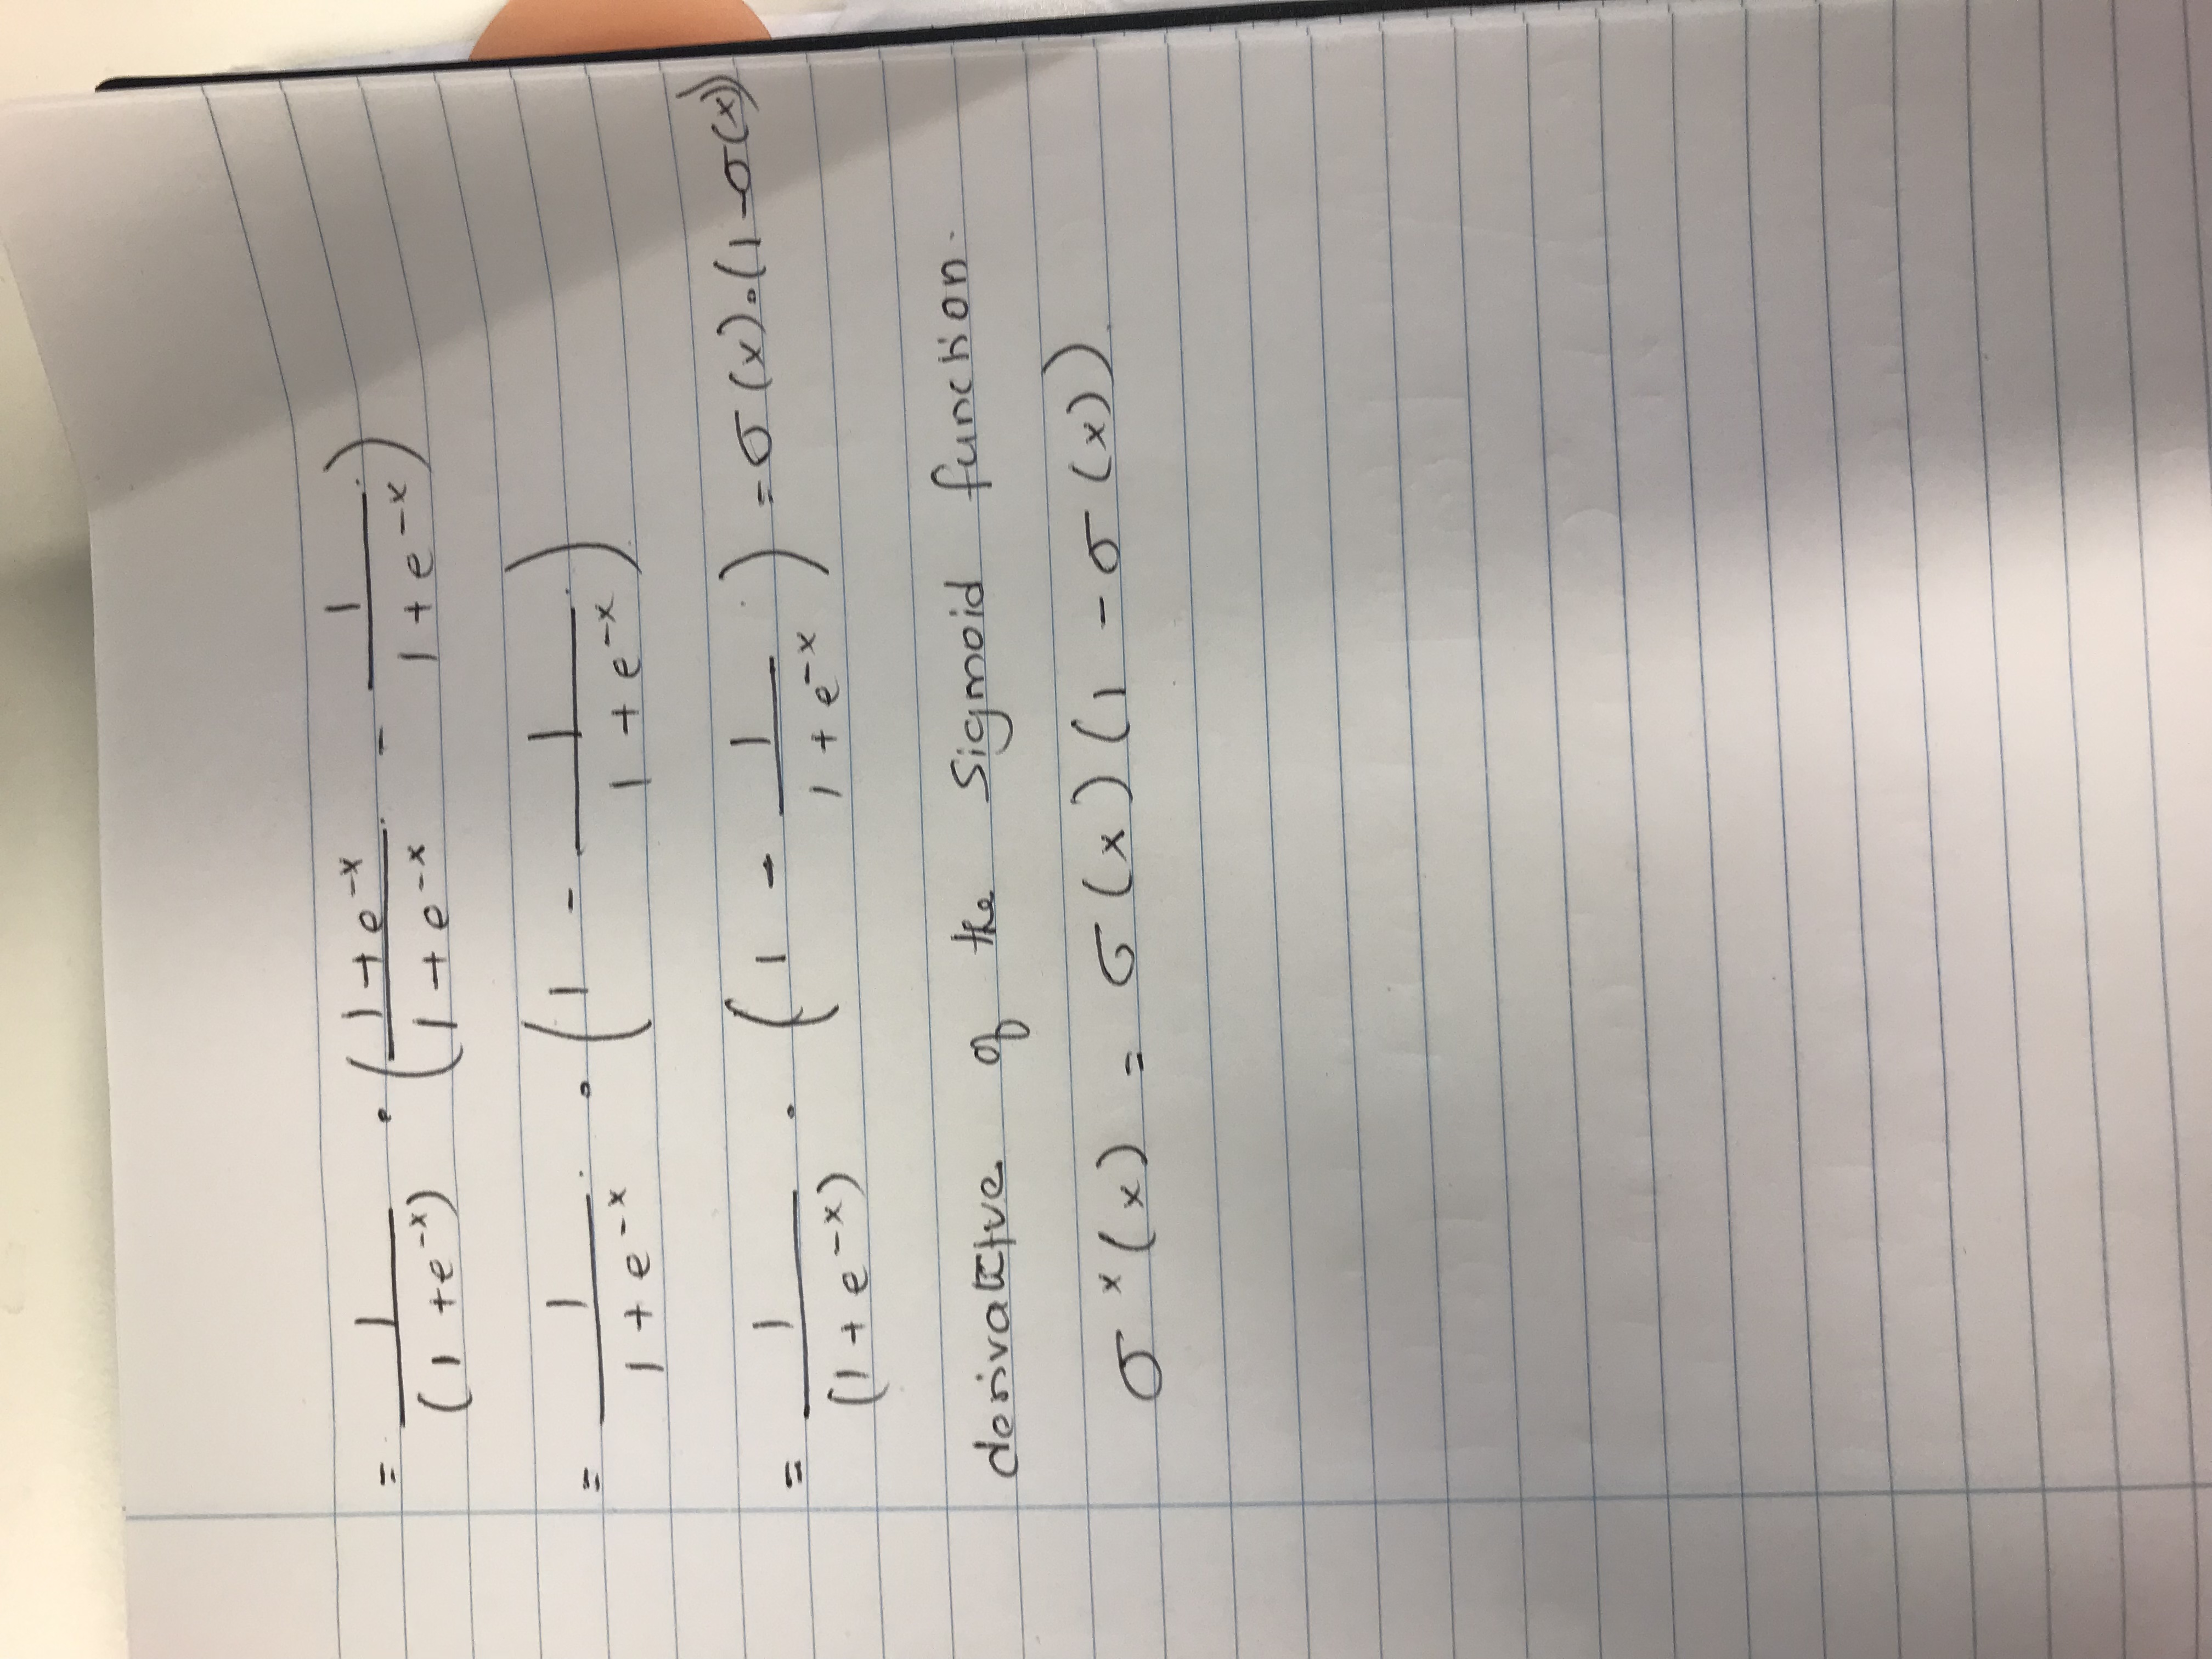 = 1/(1 + e^-x) • ((1 + e^-x)/(1 + e^-x) - 1/(1 + e^-x))
= 1/(1 + e^-x) • (1 - 1/(1 + e^-x))
= 1/(1 + e^-x) • (1 - 1/(1 + e^-x)) = σ(x)•(1-σ(x))
derivative of the Sigmoid function.
σ^x(x) = σ(x)(1 - σ(x)).